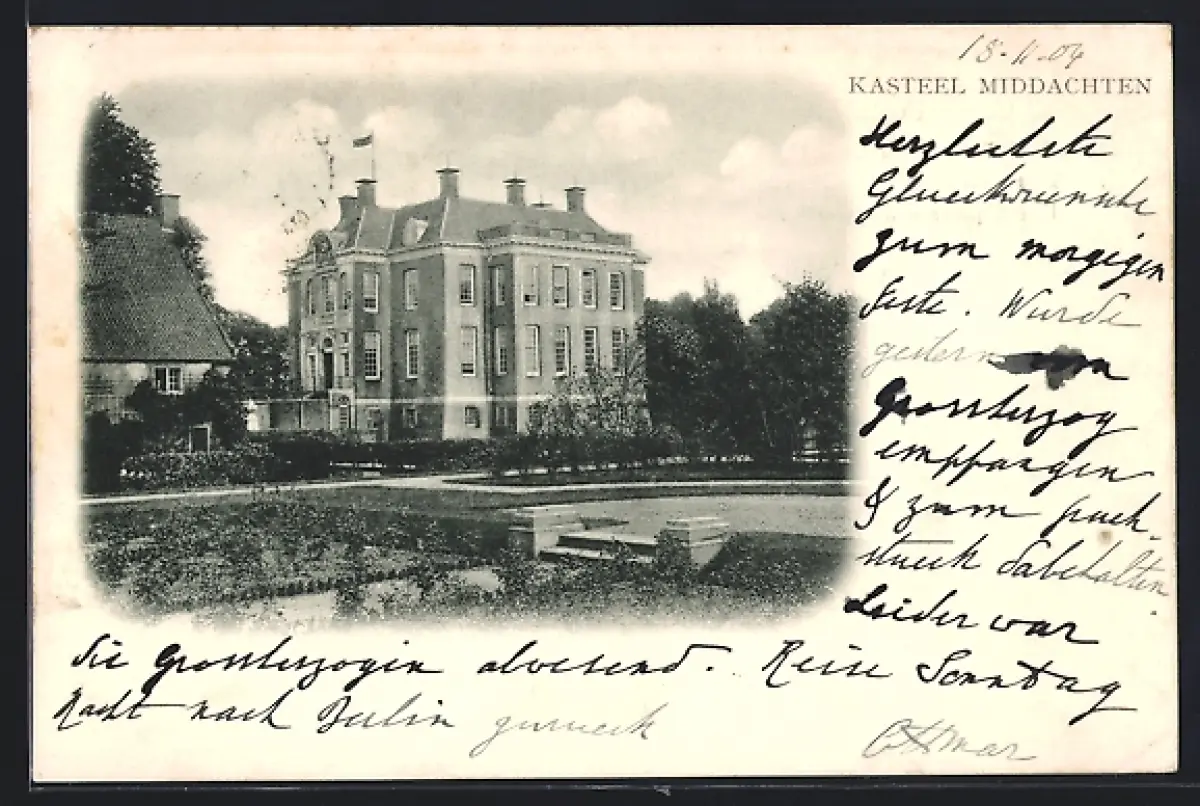 18-11-04
KASTEEL MIDDACHTEN
Herzlichste
Glueckwuensche
zum morgigen
Feste. Wurde
gestern von
Grossherzog
empfangen
& zum frueh-
stueck dabehalten.
Leider war
die Grossherzogin abwesend. Reise Sonntag
Nacht nach Berlin zurueck
Ottmar